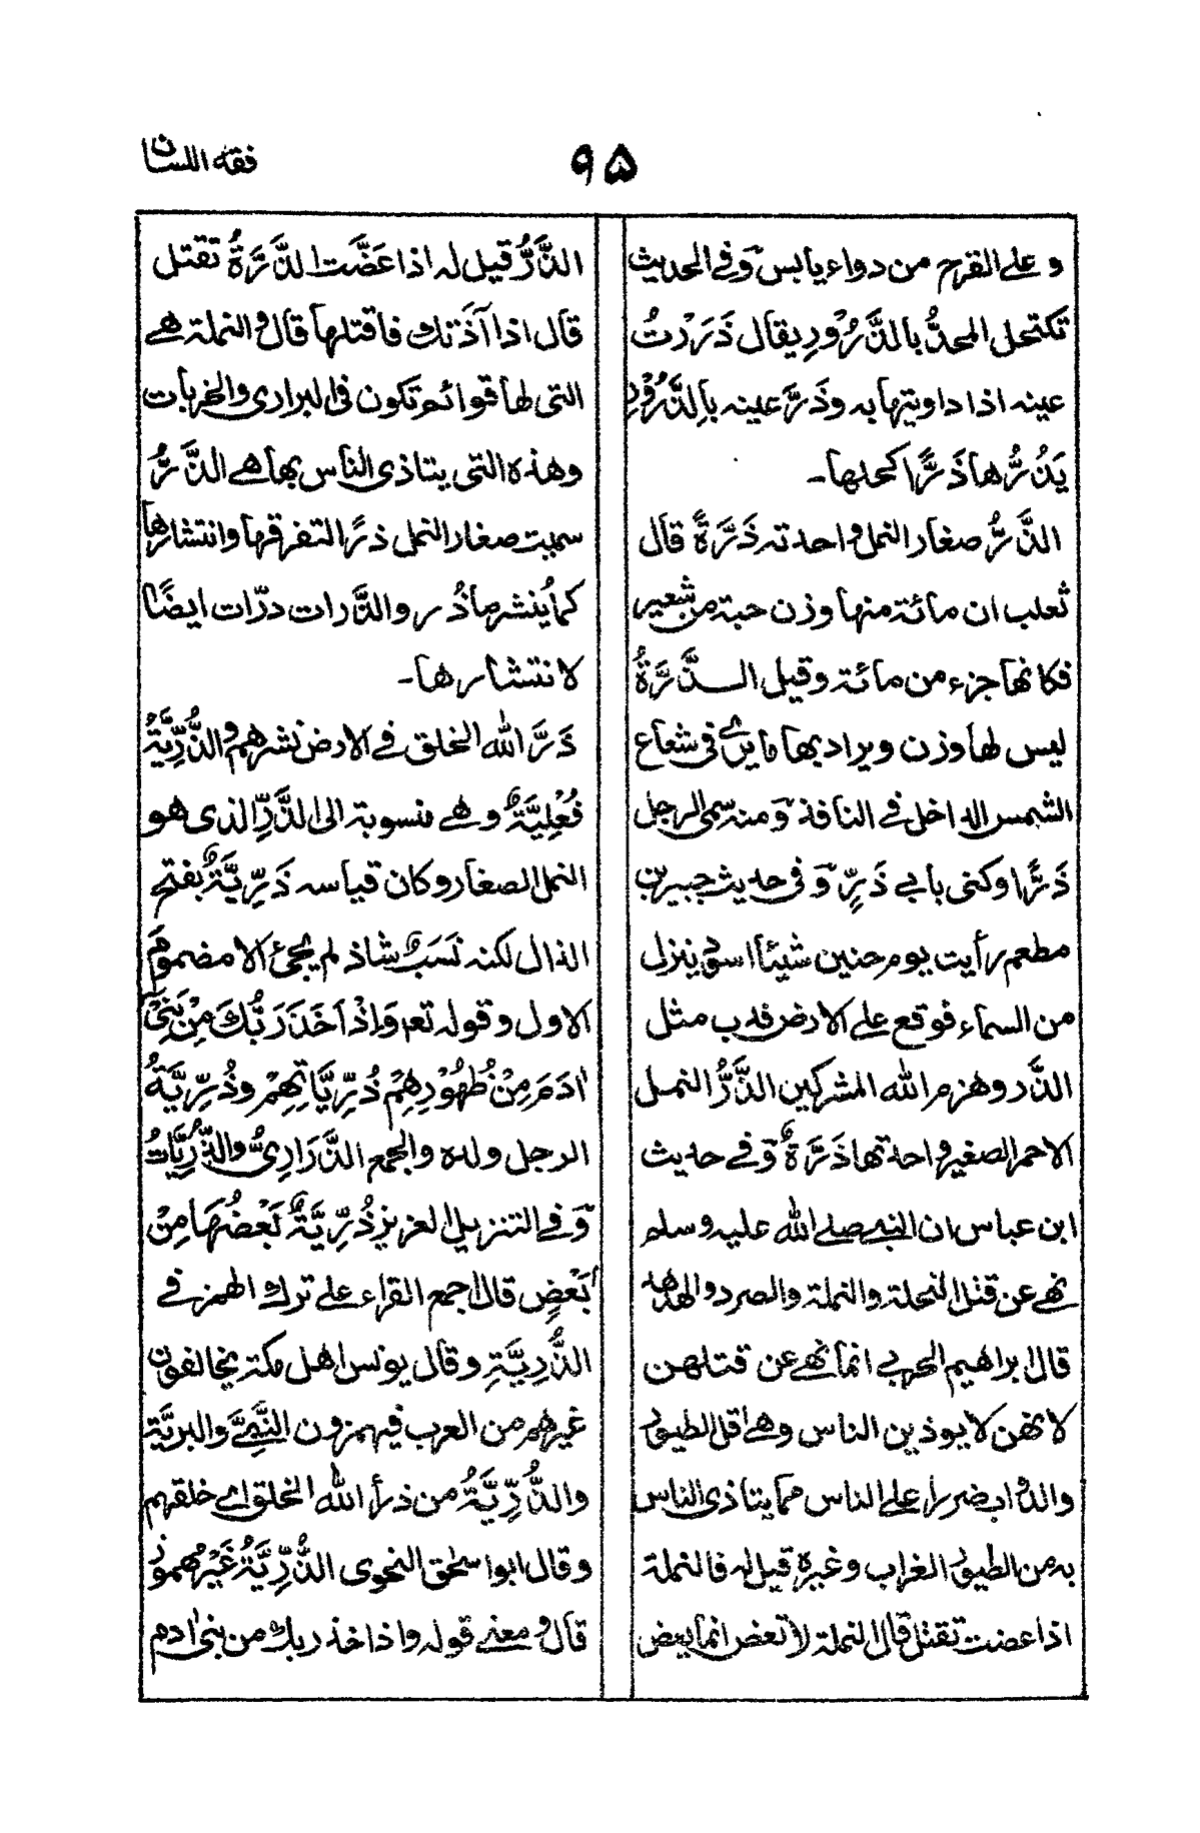 فقه اللسان
۹۵
و على القرح من دواء يابس وَفى الحديث
تكتحل المحدُّ بالذَّرُوْرِ يقال ذَرَرْتُ
عينه اذا داويتها به وذَرَّ عينه بالذَّرُوْرِ
يَذُرُّها ذَرًّا كحلها۔
الذَّرُّ صغار النمل واحدته ذَرَّةً قال
ثعلب ان مائة منها وزن حبة من شعير
فكانها جزء من مائة وقيل الذَّرَّةُ
ليس لها وزن ويراد بها ما يرى فى شعاع
الشمس الداخل فى النافذة ومنه سمى الرجل
ذَرًّا وكنى بابى ذَرٍّ وَ فى حديث جبير بن
مطعم رأيت يوم حنين شيئًا اسود ينزل
من السماء فوقع على الارض فدب مثل
الذَّر وهزم الله المشركين الذَّرُّ النمل
الاحمر الصغير واحدتها ذَرَّةٌ وَفى حديث
ابن عباس ان النبى صلى الله عليه وسلم
نهى عن قتل النحلة والنملة والصرد والهدهد
قال ابراهيم الحربى انما نهى عن قتلهن
لانهن لا يوذين الناس وهى اقل الطيور
والدواب ضررا على الناس مما يتاذى الناس
به من الطيور الغراب وغيره قيل له فالنملة
اذا عضت تقتل قال النملة لا تعض انما يعض
الذَّرُّ قيل له اذا عَضَّت الذَّرَّةُ تقتل
قال اذا آذَتك فاقتلها قال والنملة هى
التى لها قوائم تكون فى البرارى والخربات
وهذه التى يتاذى الناس بها هى الذَّرُّ
سميت صغار النمل ذرًّا لتفرقها وانتشارها
كما يُنشر ما ذُر والذَّرات درّات ايضًا
لانتشارها۔
ذَرَّ الله الخلق فى الارض نشرهم والذُّرِّيَّةُ
فُعْلِيَّةٌ وهى منسوبة الى الذَّرِّ الذى هو
النمل الصغار وكان قياسه ذَرِّيَّةٌ بفتح
الذال لكنه نَسَبٌ شاذ لم يجئ الا مضموم
الاول وقوله تعه وَاِذْ اَخَذَ رَبُّكَ مِنْ بَنِىْ
اٰدَمَ مِنْ ظُهُوْرِهِمْ ذُرِّيَّاتِهِمْ وذُرِّيَّةُ
الرجل ولده والجمع الذَّرَارِىُّ والذُّرِّيَّاتُ
وَفى التنزيل العزيز ذُرِّيَّةٌ بَعْضُهَا مِنْ
بَعْضٍ قال اجمع القراء على ترك الهمز فى
الذُّرِيَّةِ وقال يونس اهل مكة يخالفون
غيرهم من العرب فيهمزون النَّبِىَّ والبريَّة
والذُّرِّيَّةُ من ذرأ الله الخلق اى خلقهم
وقال ابو اسحٰق النحوى الذُّرِّيَّةُ غَيْرُ مهموز
قال ومعنى قوله واذ اخذ ربك من بنى اٰدم